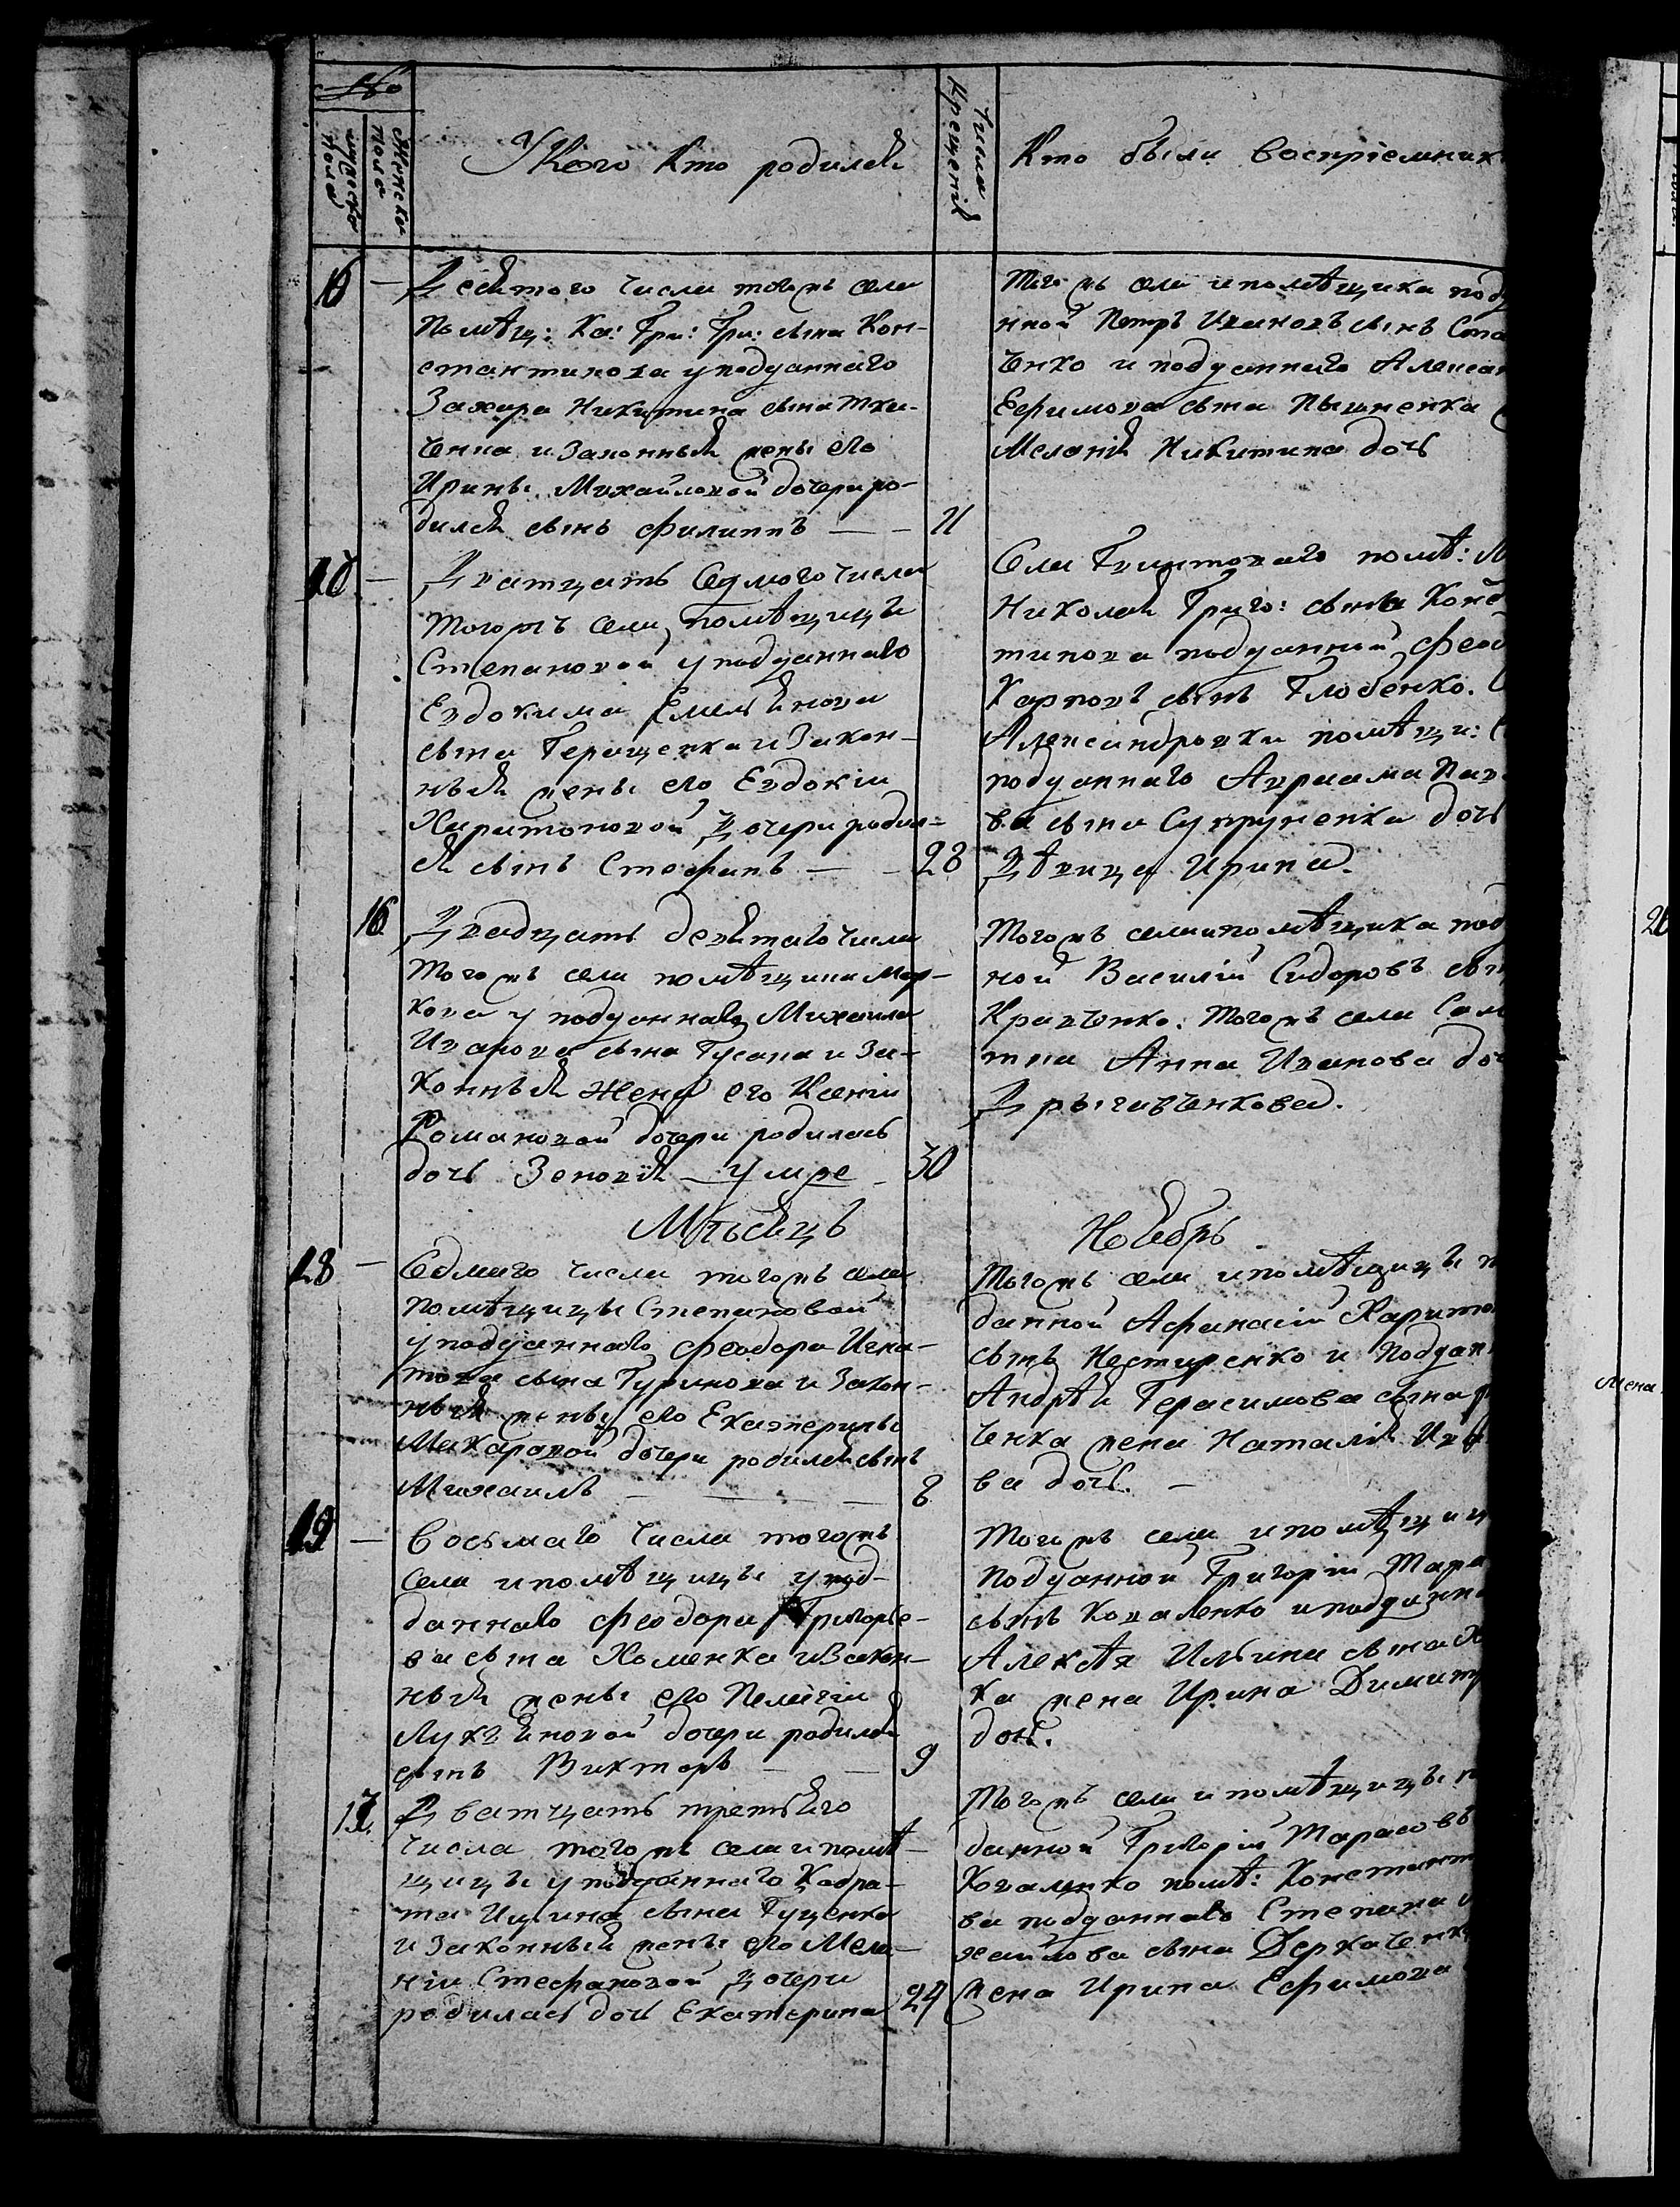 №
Мужеска пола
Женска пола
У Кого Кто родился
Число Крещенiя
Кто были воспрiемник
16 — Десятого числа тогожъ села
Помѣщ: Ка: Гри: Гри: сына Кон-
стантинова уподданнаго
Захара Никитина сына Тка-
ченка и законныя жены его
Ирины Михайловой дочери ро-
дился сынъ Филиппъ — — 11
Тогожъ села и помѣщика подда
нной Петръ Ивановъ сынъ
ченко и подданнаго Алексан
Ефимова сына Пышненка
Меланiя Никитина дочь
— Дватцать Седмого числа
тогожъ села помѣщицы
Степановой уподданнаго
Евдокима Емельянова
сына Геращенка и Закон-
ныя жены его Евдокiи
Харитоновой Дочери родил-
ся сынъ Стефанъ — — 28
Села Гвинтоваго помѣ:
Николая Григо: сына Конс
тинова подданной Фео
Карповъ сынъ Глобенко.
Александровки помѣщи:
подданнаго Авраама Пав
ва сына Супруненка дочь
Дѣвица Ирина.
16 Двадцать девятаго числа
тогожъ села помѣщика Мар-
кова у подданнаго Михаила
Иванова сына Гусака и За-
конныя жены его Ксенiи
Романовой дочери родилась
дочь Зеновiя — умре — 30
Тогожъ села и помѣщика под
ной Василiй Сидоровъ сын
Кравченко. Тогожъ села
Анна Иванова доч
Мѣсяцъ Ноябрь
18 — Седмаго числа тогожъ села
помѣщицы Степановой
уподданнаго Феодора Игна-
това сына Гуринова и Закон-
ныя жены его Екатерины
Макаровой дочери родился сынъ
Михаилъ — — — 8
Тогожъ села и помѣщицы п
данной Афанасiй Харито
сынъ Нестеренко и Поддан
Андрѣя Герасимова сына
ченка жена Наталiя Ива
ва дочь. —
19 — Восьмаго числа тогожъ
села и помѣщицы упод-
даннаго Феодора Григорье-
ва сына Хоменка и Закон-
ныя жены его Пелагiи
Лукьяновой дочери родился
сынъ Викторъ — — 9
Тогожъ села и помѣщиц
Подданной Григорiй Тара
сынъ Коваленко и поддана
Алексѣя Ильина сына
ка жена Ирина Димитр
дочь.
17. Дватцать третьяго
числа тогожъ села и помѣ-
щицы уподданнаго Кодра-
та сына Гуценка
и законныя жены его Мела-
нiи Стефановой Дочери
родилась дочь Екатерина 24
Тогожъ села и помѣщицы п
данной Григорiй Тарасовъ
Коваленко помѣ: Константи
ва подданнаго Степана
хайлова сына Деркаченк
жена Ирина Ефимова
26
жена